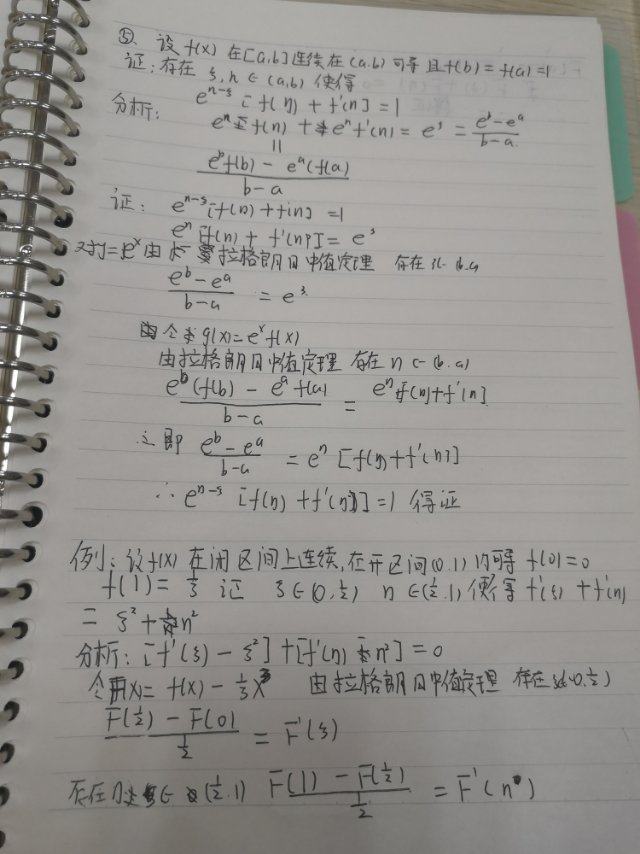 ⑤. 设 f(x) 在[a,b]连续在(a,b)可导且f(b)=f(a)=1
证:存在 ξ,η∈(a,b) 使得
e^{η-ξ}[f(η)+f'(η)]=1
分析:
e^η f(η) + e^η f'(η) = e^ξ = \frac{e^b-e^a}{b-a}
||
\frac{e^b f(b) - e^a(f(a)}{b-a}
证: e^{η-ξ}[f(η)+f(η)]=1
e^η[f(η)+f'(η)]=e^ξ
对y=e^x由 拉格朗日中值定理 存在
\frac{e^b-e^a}{b-a} = e^ξ
令 g(x)=e^x f(x)
由拉格朗日中值定理 存在 η∈(b.a)
\frac{e^b(f(b)-e^a f(a)}{b-a} = e^η[f(η)+f'(η)]
即 \frac{e^b-e^a}{b-a} = e^η[f(η)+f'(η)]
∴ e^{η-ξ}[f(η)+f'(η)]=1 得证
例1:设f(x)在闭区间上连续,在开区间(0,1)内可导 f(0)=0
f(1)=\frac{1}{3} 证 ξ∈(0,\frac{1}{2}) η∈(\frac{1}{2}.1)使得 f'(ξ)+f'(η)
=ξ²+η²
分析:[f'(ξ)-ξ²]+[f'(η)-η²]=0
令F(x)=f(x)-\frac{1}{3}x³ 由拉格朗日中值定理 存在ξ∈(0,\frac{1}{2})
\frac{F(\frac{1}{2})-F(0)}{\frac{1}{2}} = F'(ξ)
存在 ∈(\frac{1}{2}.1) \frac{F(1)-F(\frac{1}{2})}{\frac{1}{2}} = F'(η)